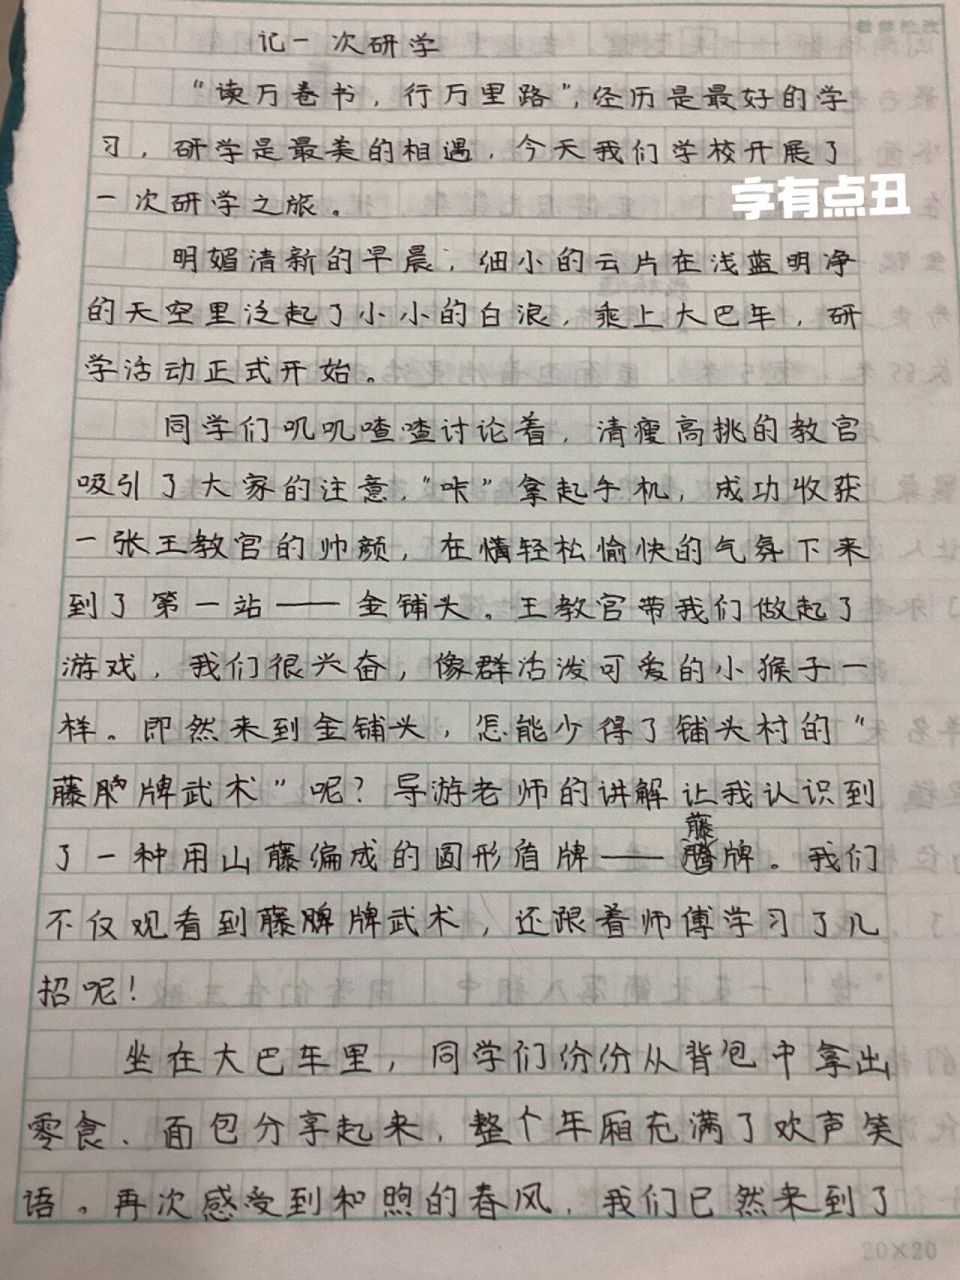 记一次研学
“读万卷书，行万里路”，经历是最好的学
习，研学是最美的相遇，今天我们学校开展了
字有点丑
一次研学之旅。
明媚清新的早晨，细小的云片在浅蓝明净
的天空里泛起了小小的白浪，乘上大巴车，研
学活动正式开始。
同学们叽叽喳喳讨论着，清瘦高挑的教官
吸引了大家的注意，“咔”拿起手机，成功收获
一张王教官的帅颜，在情轻松愉快的气氛下来
到了第一站——金铺头。王教官带我们做起了
游戏，我们很兴奋，像群活泼可爱的小猴子一
样。即然来到金铺头，怎能少得了铺头村的“
藤牌武术”呢？导游老师的讲解让我认识到
藤
了一种用山藤编成的圆形盾牌——牌。我们
不仅观看到藤牌武术，还跟着师傅学习了几
招呢！
坐在大巴车里，同学们份份从背包中拿出
零食、面包分享起来，整个车厢充满了欢声笑
语。再次感受到和煦的春风，我们已然来到了
20×20